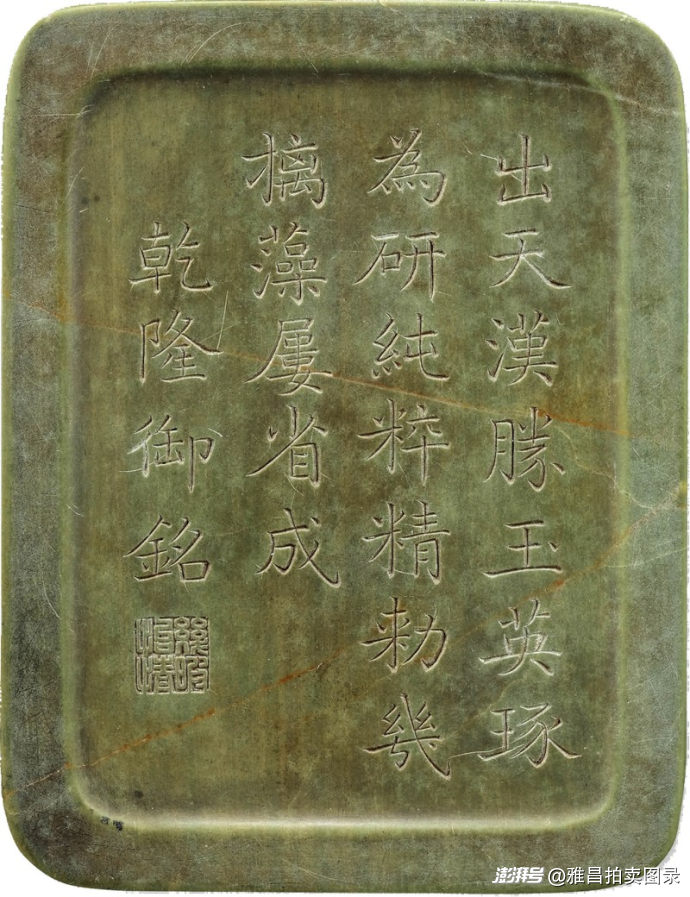 出天漢勝玉英琢
為研純粹精勅幾
摛藻屢省成
乾隆御銘
澎湃号 @雅昌拍卖图录